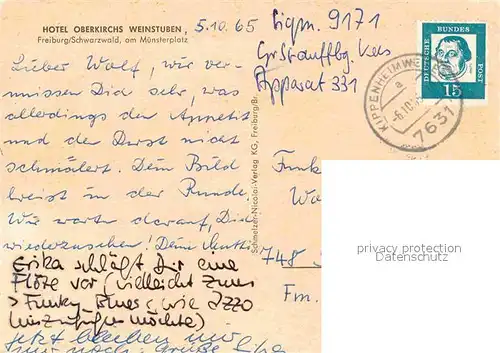 HOTEL OBERKIRCHS WEINSTUBEN,
Freiburg/Schwarzwald, am Münsterplatz
5.10.65
Lieber Wolf, wir ver-
missen Dich sehr, was
allerdings den Appetit
und den Durst nicht
schmälert. Dein Bild
kreist in der Runde.
Wir warten darauf, Dich
wiederzusehen! Dein
Erika schlägt Dir eine
Flöte vor (vielleicht zum
> Funky Blues <, wie Izzo
hinzufügen möchte)
jetzt bleiben nur
nur noch Grüße
Schmelzer-Nicolai-Verlag KG, Freiburg/Br.
9171
Apparat 331
DEUTSCHE BUNDES POST
15
KIPPENHEIMWEILER
a
-6.10.65
7631
Funk
748
Fm.
privacy protection
Datenschutz